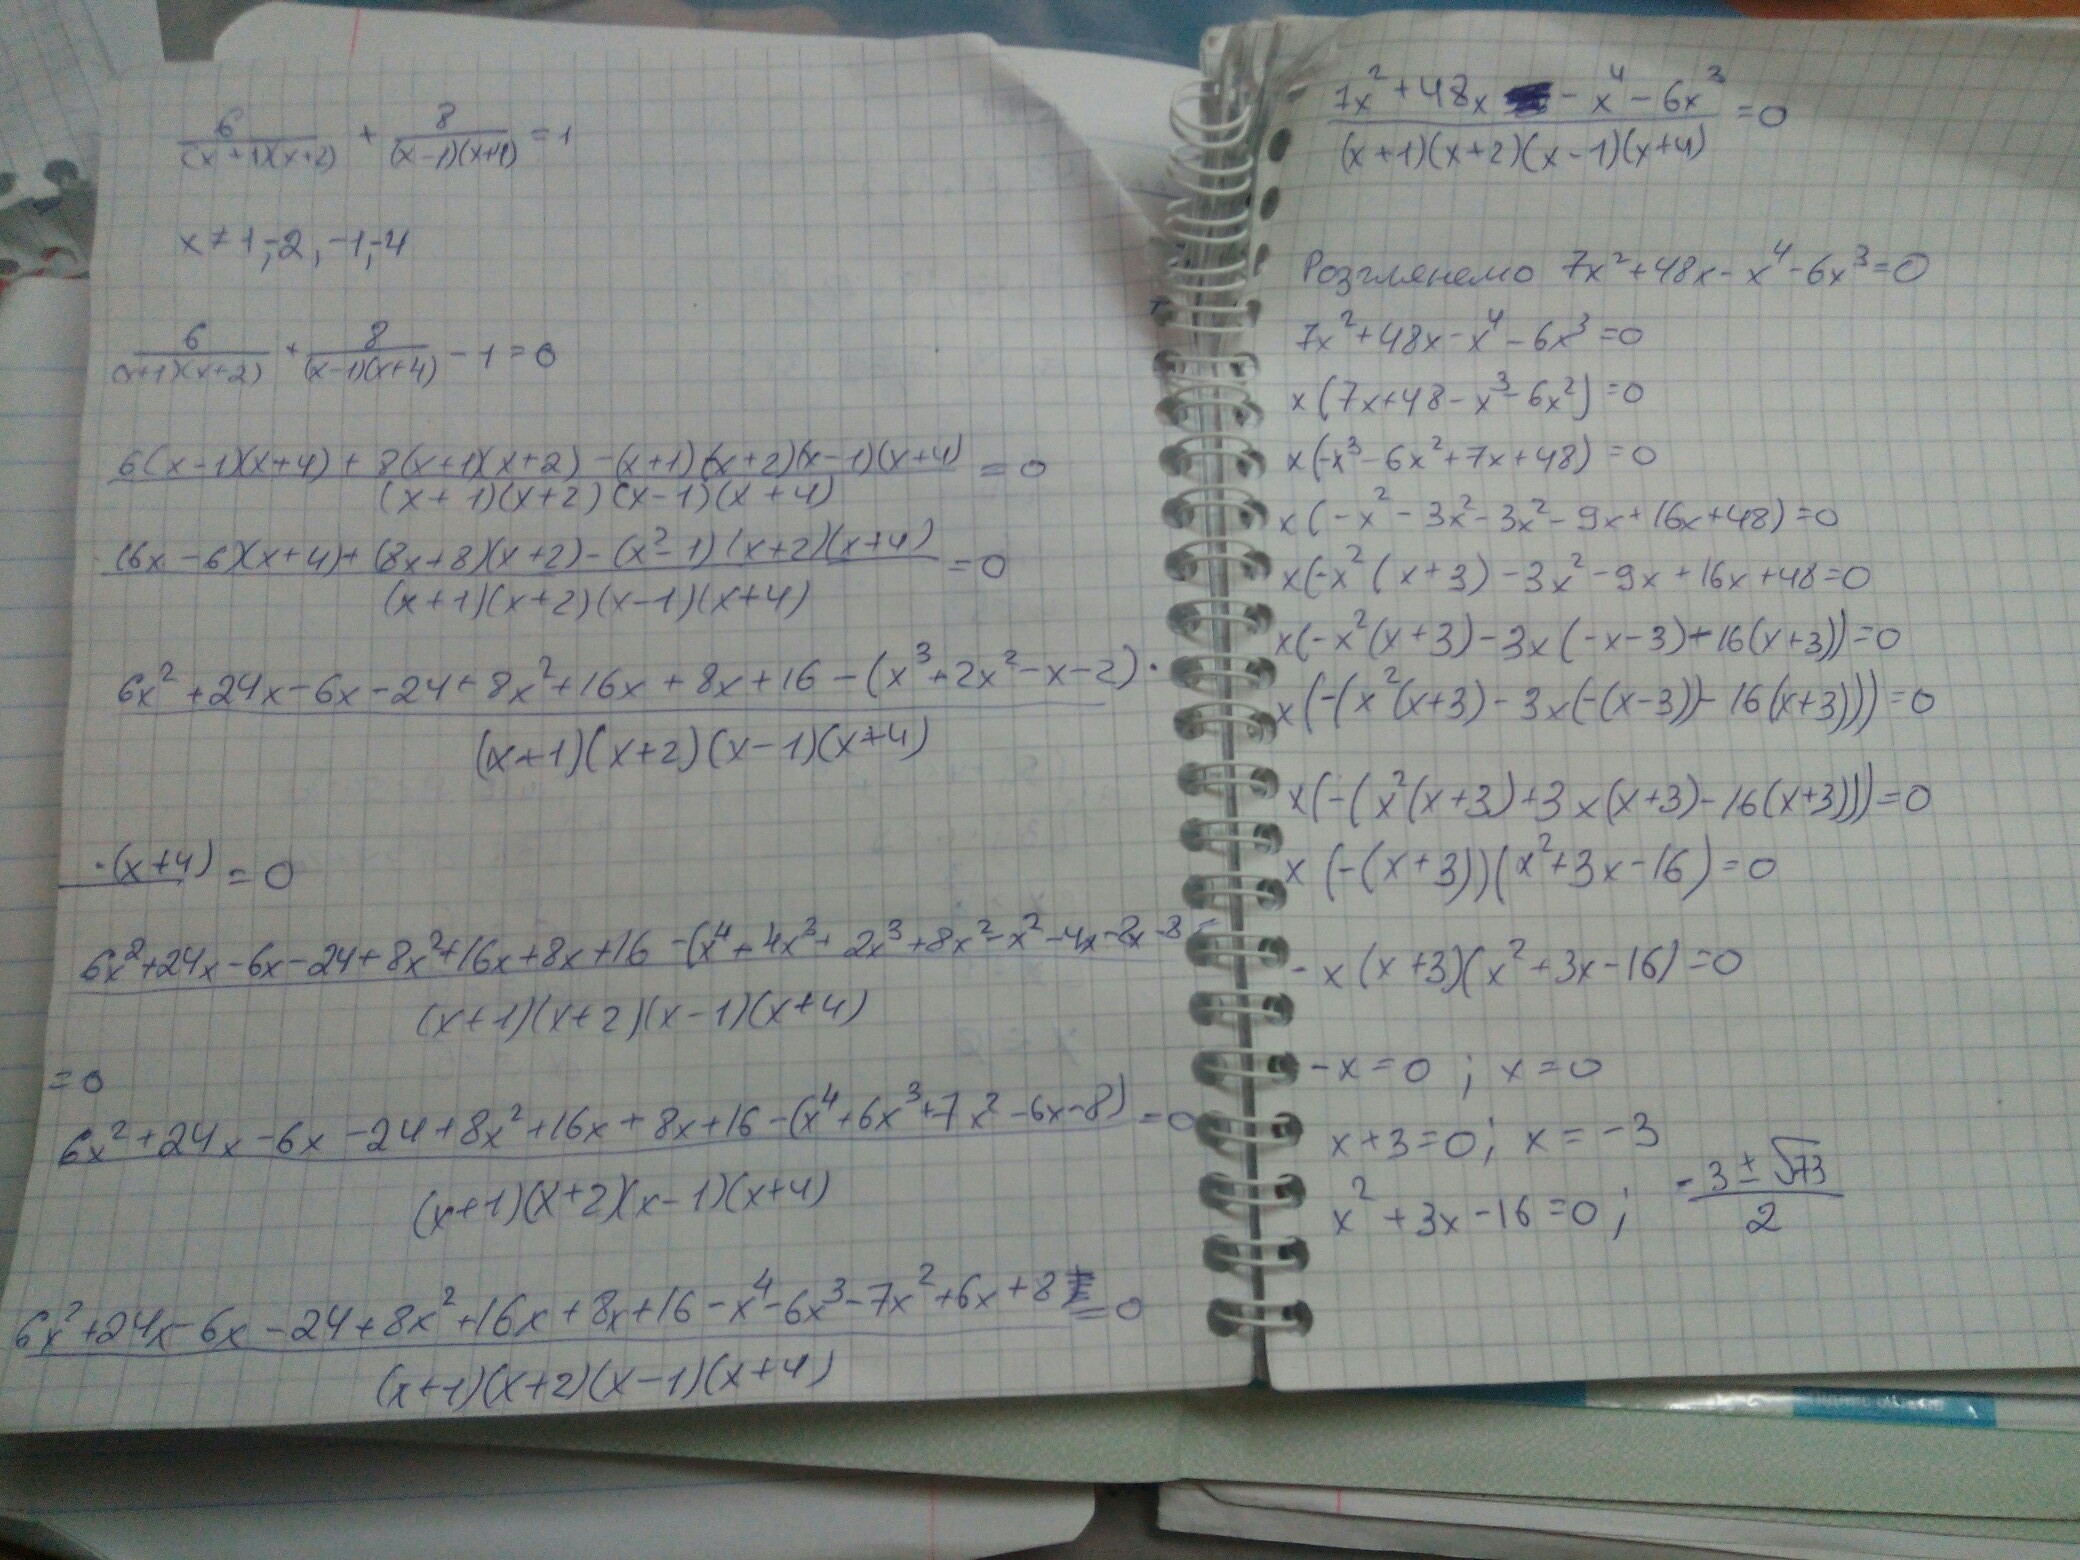 6/((x+1)(x+2)) + 8/((x-1)(x+4)) = 1
x ≠ 1,-2, -1,-4
6/((x+1)(x+2)) + 8/((x-1)(x+4)) - 1 = 0
(6(x-1)(x+4) + 8(x+1)(x+2) - (x+1)(x+2)(x-1)(x+4))/((x+1)(x+2)(x-1)(x+4)) = 0
((6x-6)(x+4) + (8x+8)(x+2) - (x²-1)(x+2)(x+4))/((x+1)(x+2)(x-1)(x+4)) = 0
6x² + 24x - 6x - 24 + 8x² + 16x + 8x + 16 - (x³ + 2x² - x - 2) ·
(x+1)(x+2)(x-1)(x+4)
·(x+4) = 0
6x² + 24x - 6x - 24 + 8x² + 16x + 8x + 16 - (x⁴ + 4x³ + 2x³ + 8x² - x² - 4x - 2x - 8 =
(x+1)(x+2)(x-1)(x+4)
= 0
(6x² + 24x - 6x - 24 + 8x² + 16x + 8x + 16 - (x⁴ + 6x³ + 7x² - 6x - 8))/((x+1)(x+2)(x-1)(x+4)) = 0
(6x² + 24x - 6x - 24 + 8x² + 16x + 8x + 16 - x⁴ - 6x³ - 7x² + 6x + 8)/((x+1)(x+2)(x-1)(x+4)) = 0
(7x² + 48x - x⁴ - 6x³)/((x+1)(x+2)(x-1)(x+4)) = 0
Розглянемо 7x² + 48x - x⁴ - 6x³ = 0
7x² + 48x - x⁴ - 6x³ = 0
x(7x + 48 - x³ - 6x²) = 0
x(-x³ - 6x² + 7x + 48) = 0
x(-x² - 3x² - 3x² - 9x + 16x + 48) = 0
x(-x²(x+3) - 3x² - 9x + 16x + 48 = 0
x(-x²(x+3) - 3x(-x-3) + 16(x+3)) = 0
x(-(x²(x+3) - 3x(-(x-3)) - 16(x+3))) = 0
x(-(x²(x+3) + 3x(x+3) - 16(x+3))) = 0
x(-(x+3))(x² + 3x - 16) = 0
-x(x+3)(x² + 3x - 16) = 0
-x = 0 ; x = 0
x + 3 = 0; x = -3
x² + 3x - 16 = 0; (-3 ± √73)/2